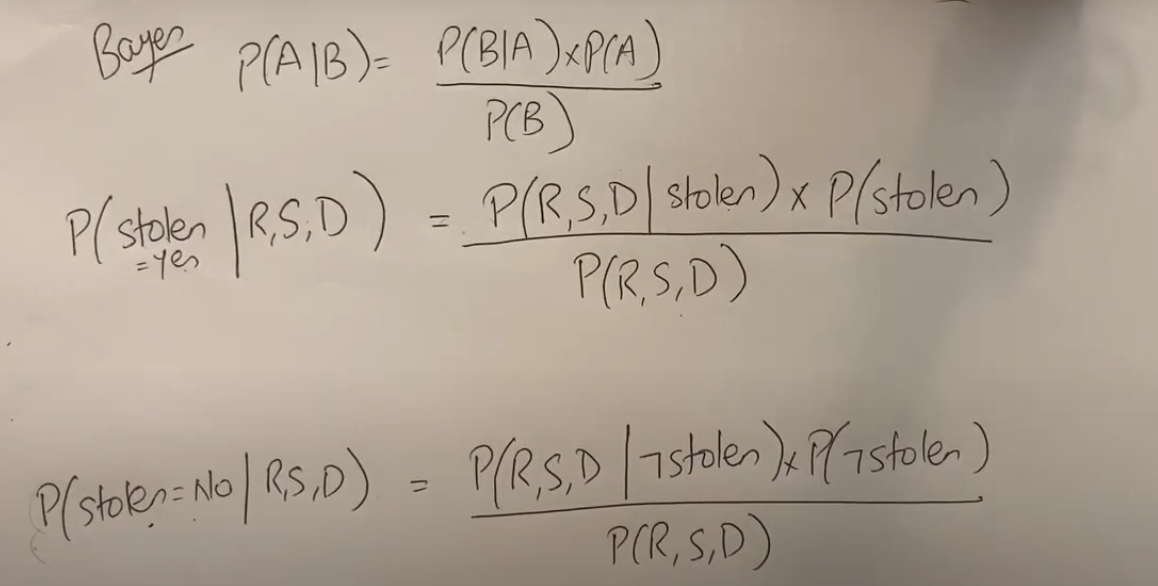 Bayes P(A|B)= P(B|A)×P(A)
P(B)
P(stolen | R,S,D) = P(R,S,D | stolen) × P(stolen)
=yes
P(R,S,D)
P(stolen=No | R,S,D) = P(R,S,D | ¬stolen)× P(¬stolen)
P(R,S,D)